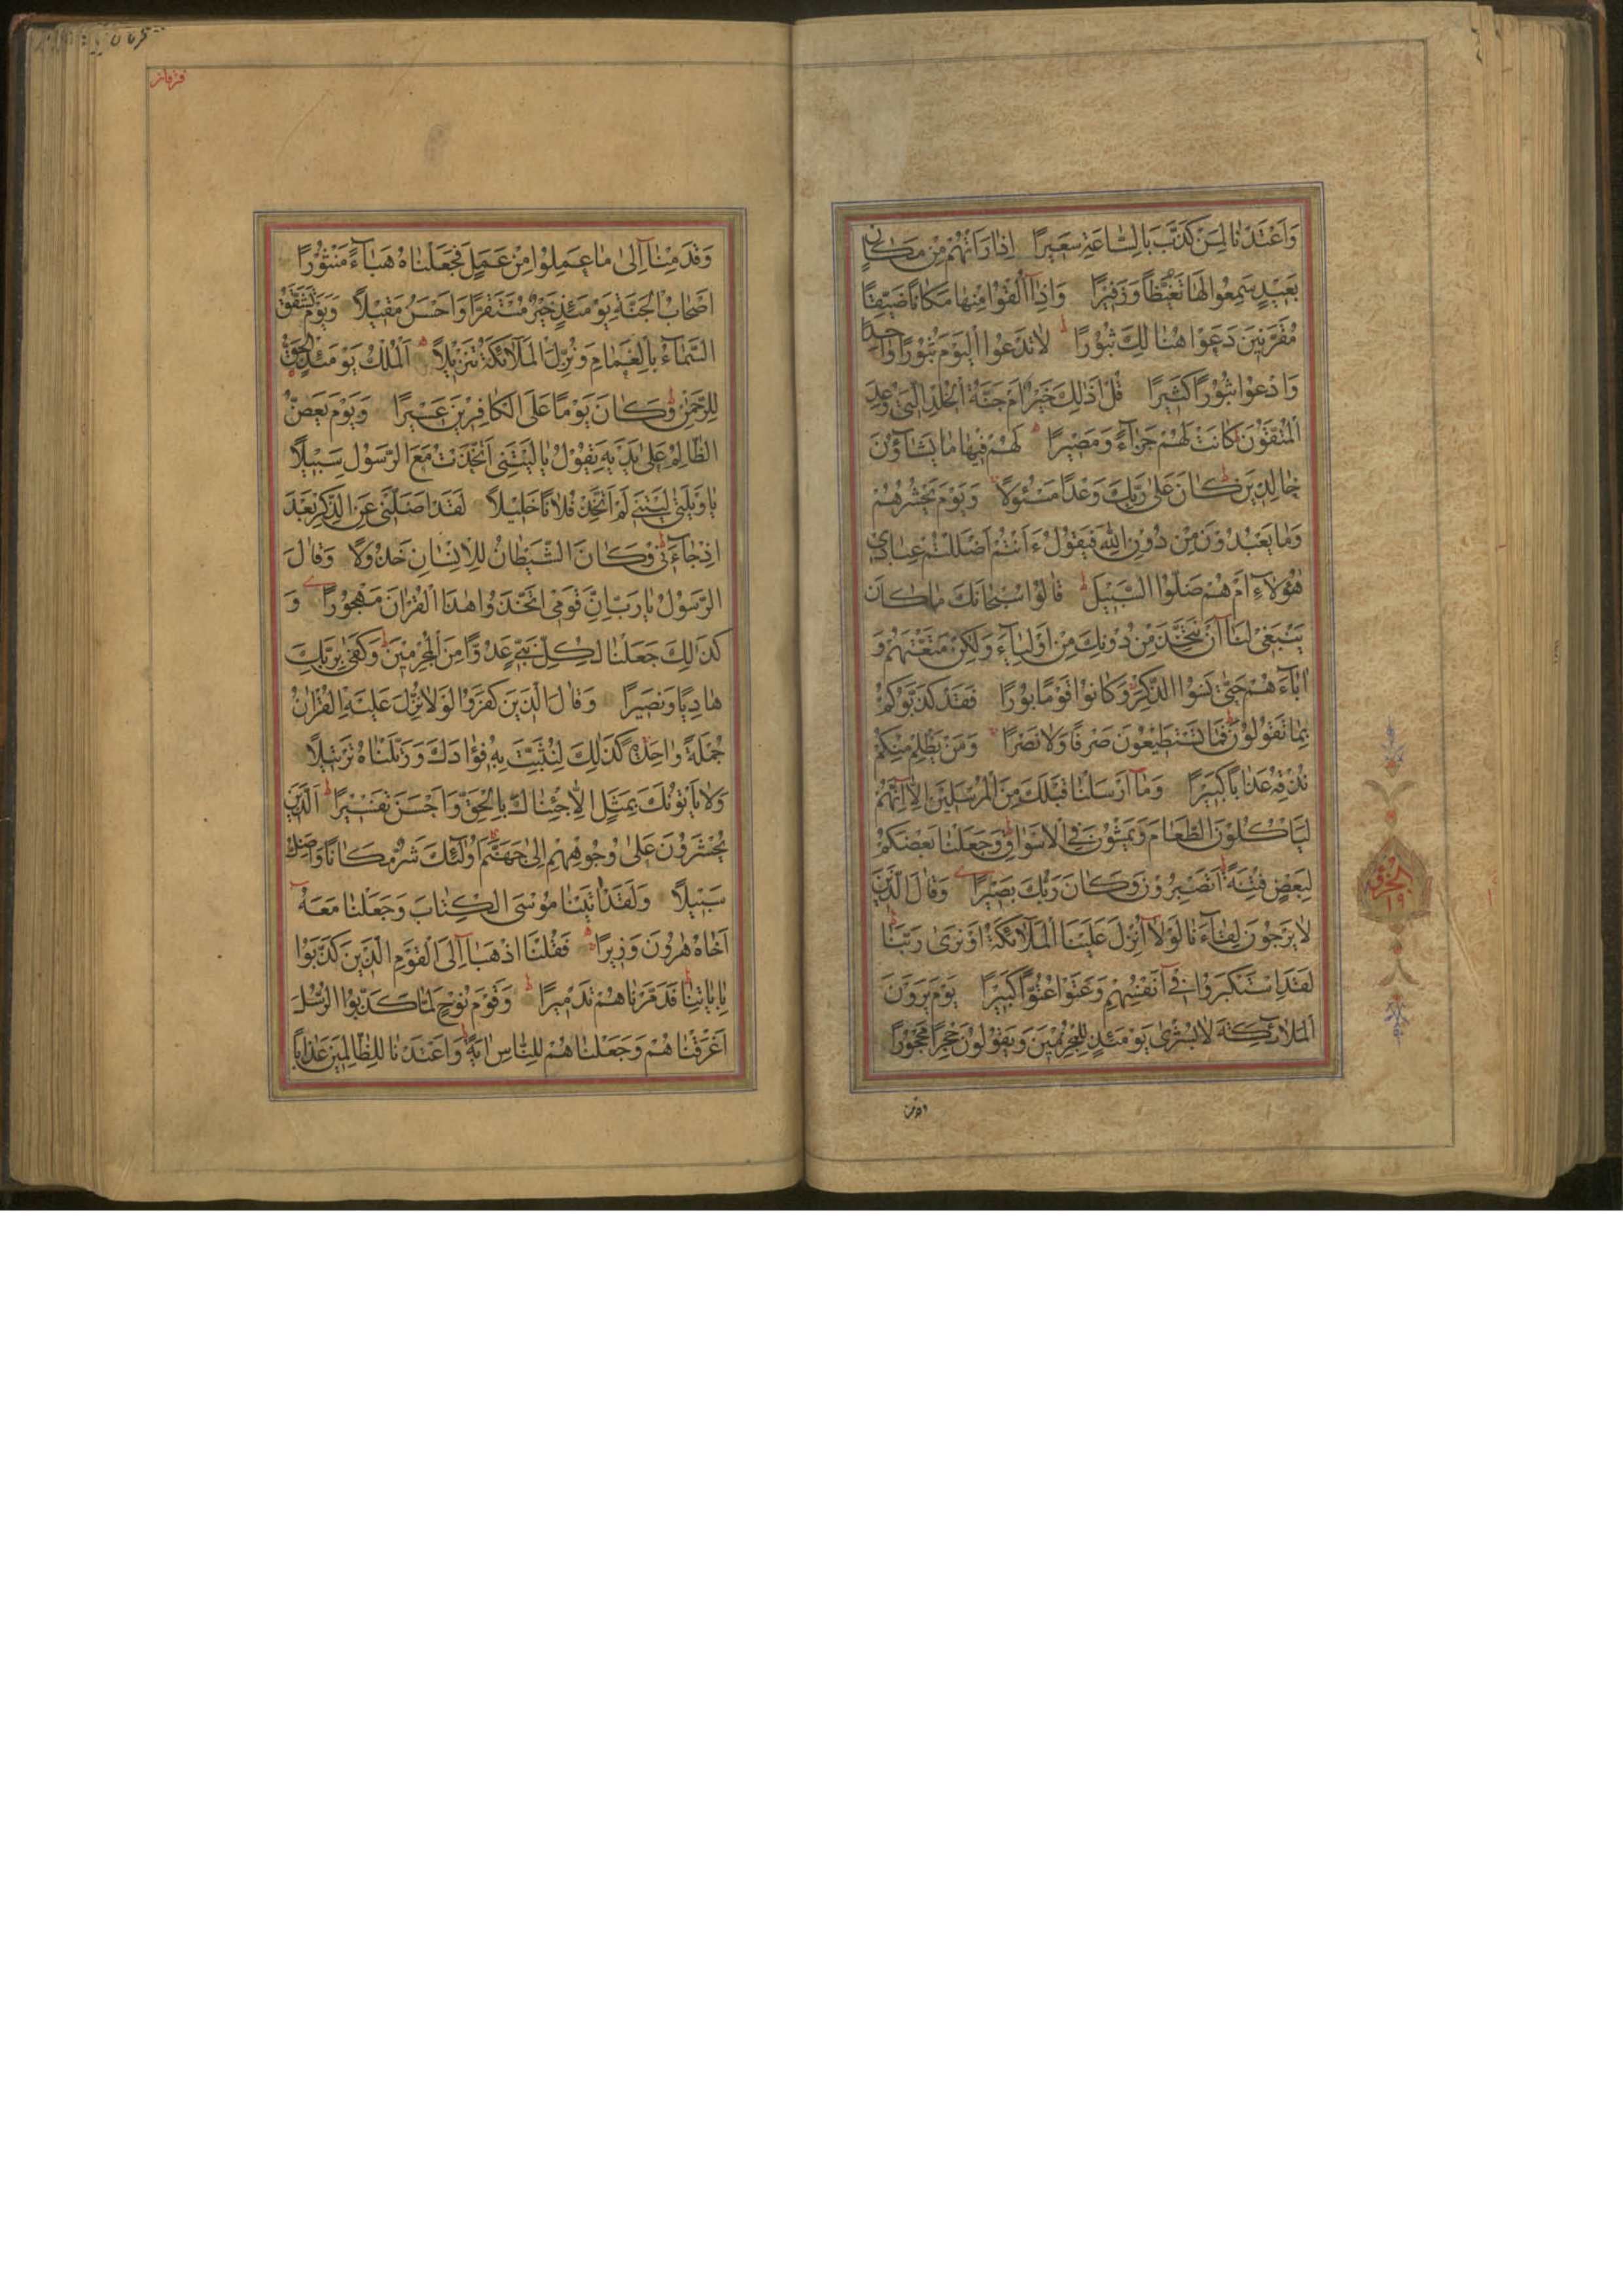 وَاَعْتَدْنَا لِمَنْ كَذَّبَ بِالسَّاعَةِ سَعِيرًا اِذَا رَاَتْهُمْ مِنْ مَكَانٍ
بَعِيدٍ سَمِعُوا لَهَا تَغَيُّظًا وَزَفِيرًا وَاِذَآ اُلْقُوا مِنْهَا مَكَانًا ضَيِّقًا
مُقَرَّنِينَ دَعَوْا هُنَالِكَ ثُبُورًا لَا تَدْعُوا الْيَوْمَ ثُبُورًا وَاحِدًا
وَادْعُوا ثُبُورًا كَثِيرًا قُلْ اَذٰلِكَ خَيْرٌ اَمْ جَنَّةُ الْخُلْدِ الَّتِي وُعِدَ
الْمُتَّقُونَ كَانَتْ لَهُمْ جَزَآءً وَمَصِيرًا لَهُمْ فِيهَا مَا يَشَآؤُنَ
خَالِدِينَ كَانَ عَلٰى رَبِّكَ وَعْدًا مَسْئُولًا وَيَوْمَ يَحْشُرُهُمْ
وَمَا يَعْبُدُونَ مِنْ دُونِ اللّٰهِ فَيَقُولُ ءَاَنْتُمْ اَضْلَلْتُمْ عِبَادِي
هٰؤُلَآءِ اَمْ هُمْ ضَلُّوا السَّبِيلَ قَالُوا سُبْحَانَكَ مَا كَانَ
يَنْبَغِي لَنَآ اَنْ نَتَّخِذَ مِنْ دُونِكَ مِنْ اَوْلِيَآءَ وَلٰكِنْ مَتَّعْتَهُمْ وَ
اٰبَآءَهُمْ حَتّٰى نَسُوا الذِّكْرَ وَكَانُوا قَوْمًا بُورًا فَقَدْ كَذَّبُوكُمْ
بِمَا تَقُولُونَ فَمَا تَسْتَطِيعُونَ صَرْفًا وَلَا نَصْرًا وَمَنْ يَظْلِمْ مِنْكُمْ
نُذِقْهُ عَذَابًا كَبِيرًا وَمَآ اَرْسَلْنَا قَبْلَكَ مِنَ الْمُرْسَلِينَ اِلَّآ اِنَّهُمْ
لَيَاْكُلُونَ الطَّعَامَ وَيَمْشُونَ فِي الْاَسْوَاقِ وَجَعَلْنَا بَعْضَكُمْ
لِبَعْضٍ فِتْنَةً اَتَصْبِرُونَ وَكَانَ رَبُّكَ بَصِيرًا وَقَالَ الَّذِينَ
لَا يَرْجُونَ لِقَآءَنَا لَوْلَآ اُنْزِلَ عَلَيْنَا الْمَلَآئِكَةُ اَوْ نَرٰى رَبَّنَا
لَقَدِ اسْتَكْبَرُوا فِي اَنْفُسِهِمْ وَعَتَوْا عُتُوًّا كَبِيرًا يَوْمَ يَرَوْنَ
الْمَلَآئِكَةَ لَا بُشْرٰى يَوْمَئِذٍ لِلْمُجْرِمِينَ وَيَقُولُونَ حِجْرًا مَحْجُورًا
الجزؤ
١٩
وَقَدِمْنَآ اِلٰى مَا عَمِلُوا مِنْ عَمَلٍ فَجَعَلْنَاهُ هَبَآءً مَنْثُورًا
اَصْحَابُ الْجَنَّةِ يَوْمَئِذٍ خَيْرٌ مُسْتَقَرًّا وَاَحْسَنُ مَقِيلًا وَيَوْمَ تَشَقَّقُ
السَّمَآءُ بِالْغَمَامِ وَنُزِّلَ الْمَلَآئِكَةُ تَنْزِيلًا اَلْمُلْكُ يَوْمَئِذٍ الْحَقُّ
لِلرَّحْمٰنِ وَكَانَ يَوْمًا عَلَى الْكَافِرِينَ عَسِيرًا وَيَوْمَ يَعَضُّ
الظَّالِمُ عَلٰى يَدَيْهِ يَقُولُ يَا لَيْتَنِي اتَّخَذْتُ مَعَ الرَّسُولِ سَبِيلًا
يَا وَيْلَتٰى لَيْتَنِي لَمْ اَتَّخِذْ فُلَانًا خَلِيلًا لَقَدْ اَضَلَّنِي عَنِ الذِّكْرِ بَعْدَ
اِذْ جَآءَنِي وَكَانَ الشَّيْطَانُ لِلْاِنْسَانِ خَذُولًا وَقَالَ
الرَّسُولُ يَا رَبِّ اِنَّ قَوْمِي اتَّخَذُوا هٰذَا الْقُرْاٰنَ مَهْجُورًا وَ
كَذٰلِكَ جَعَلْنَا لِكُلِّ نَبِيٍّ عَدُوًّا مِنَ الْمُجْرِمِينَ وَكَفٰى بِرَبِّكَ
هَادِيًا وَنَصِيرًا وَقَالَ الَّذِينَ كَفَرُوا لَوْلَا نُزِّلَ عَلَيْهِ الْقُرْاٰنُ
جُمْلَةً وَاحِدَةً كَذٰلِكَ لِنُثَبِّتَ بِهِ فُؤَادَكَ وَرَتَّلْنَاهُ تَرْتِيلًا
وَلَا يَاْتُونَكَ بِمَثَلٍ اِلَّا جِئْنَاكَ بِالْحَقِّ وَاَحْسَنَ تَفْسِيرًا اَلَّذِينَ
يُحْشَرُونَ عَلٰى وُجُوهِهِمْ اِلٰى جَهَنَّمَ اُولٰئِكَ شَرٌّ مَكَانًا وَاَضَلُّ
سَبِيلًا وَلَقَدْ اٰتَيْنَا مُوسَى الْكِتَابَ وَجَعَلْنَا مَعَهُ
اَخَاهُ هٰرُونَ وَزِيرًا فَقُلْنَا اذْهَبَآ اِلَى الْقَوْمِ الَّذِينَ كَذَّبُوا
بِاٰيَاتِنَا فَدَمَّرْنَاهُمْ تَدْمِيرًا وَقَوْمَ نُوحٍ لَمَّا كَذَّبُوا الرُّسُلَ
اَغْرَقْنَاهُمْ وَجَعَلْنَاهُمْ لِلنَّاسِ اٰيَةً وَاَعْتَدْنَا لِلظَّالِمِينَ عَذَابًا